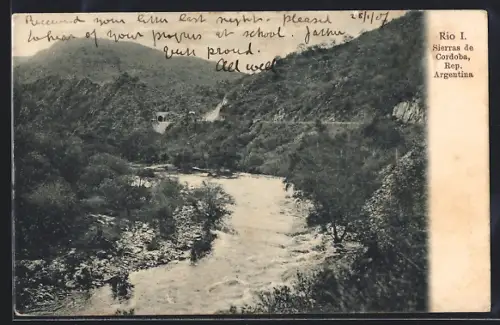 Received your little last night. Pleased 28/1/07
to hear of your progres at school. Father
quit proud.
All well
Rio I.
Sierras de
Cordoba,
Rep.
Argentina